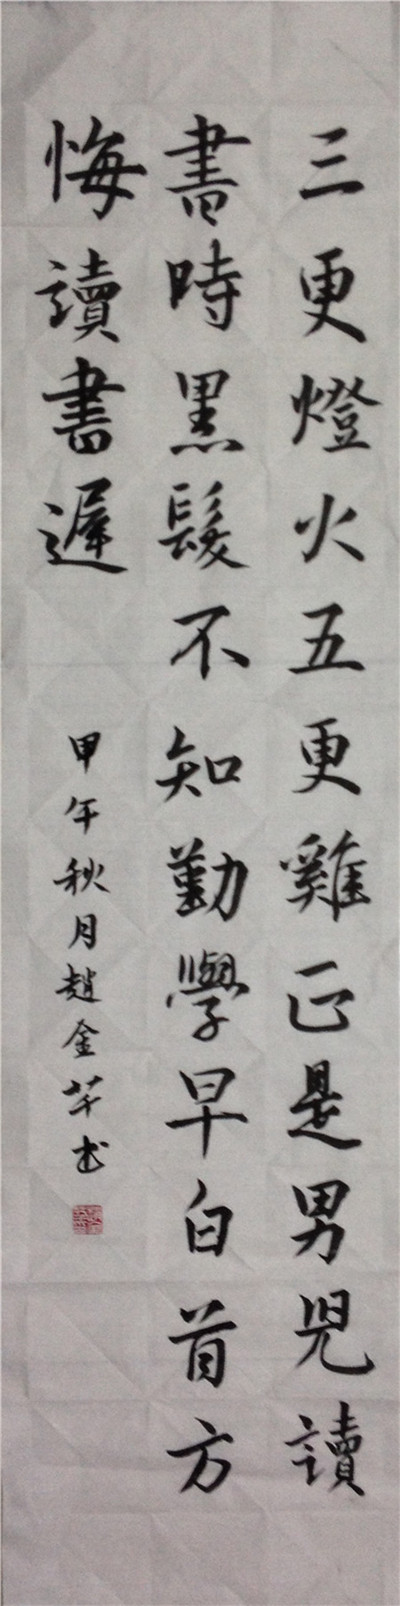 三更燈火五更雞正是男兒讀
書時黑髮不知勤學早白首方
悔讀書遲
甲午秋月趙金芊书